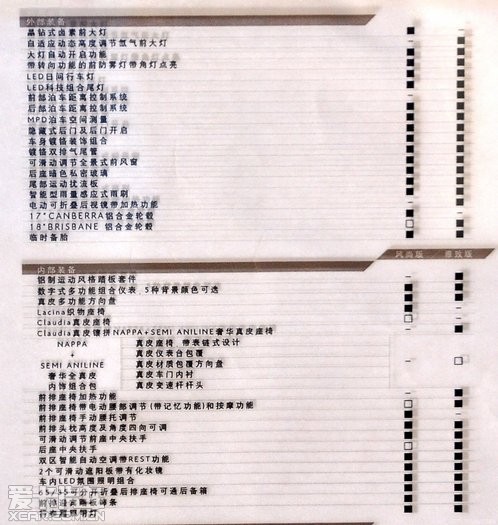 外部装备
晶钻式卤素前大灯
自适应动态高度调节氙气前大灯
大灯自动开启功能
带转向功能的前防雾灯带角灯点亮
LED日间行车灯
LED科技组合尾灯
前部泊车距离控制系统
后部泊车距离控制系统
MPD泊车空间测量
隐藏式后门及后门开启
车身镀铬装饰组合
镀铬双排气尾管
可滑动调节全景式前风窗
后座暗色私密玻璃
尾部运动扰流板
智能型雨量感应式雨刷
电动可折叠后视镜带加热功能
17"CANBERRA铝合金轮毂
18"BRISBANE 铝合金轮毂
临时备胎
内部装备 风尚版 尊致版
铝制运动风格踏板套件
数字式多功能组合仪表，5种背景颜色可选
真皮多功能方向盘
Lacina织物座椅
Claudia真皮座椅
Claudia真皮镶拼NAPPA+SEMI ANILINE奢华真皮座椅
NAPPA
+
SEMI ANILINE
奢华全真皮
内饰组合包
真皮座椅，带表链式设计
真皮仪表台包覆
真皮材质包覆方向盘
真皮车门内衬
真皮变速杆杆头
前排座椅加热功能
前排座椅带电动腰部调节(带记忆功能)和按摩功能
前排座椅手动腰托调节
前排头枕高度及角度四向可调
可滑动调节前座中央扶手
后座中央扶手
双区智能自动空调带REST功能
2个可滑动遮阳板带有化妆镜
车内LED氛围照明组合
折叠后排座椅可通后备箱
灯
爱卡汽车
XCAR.COM.CN